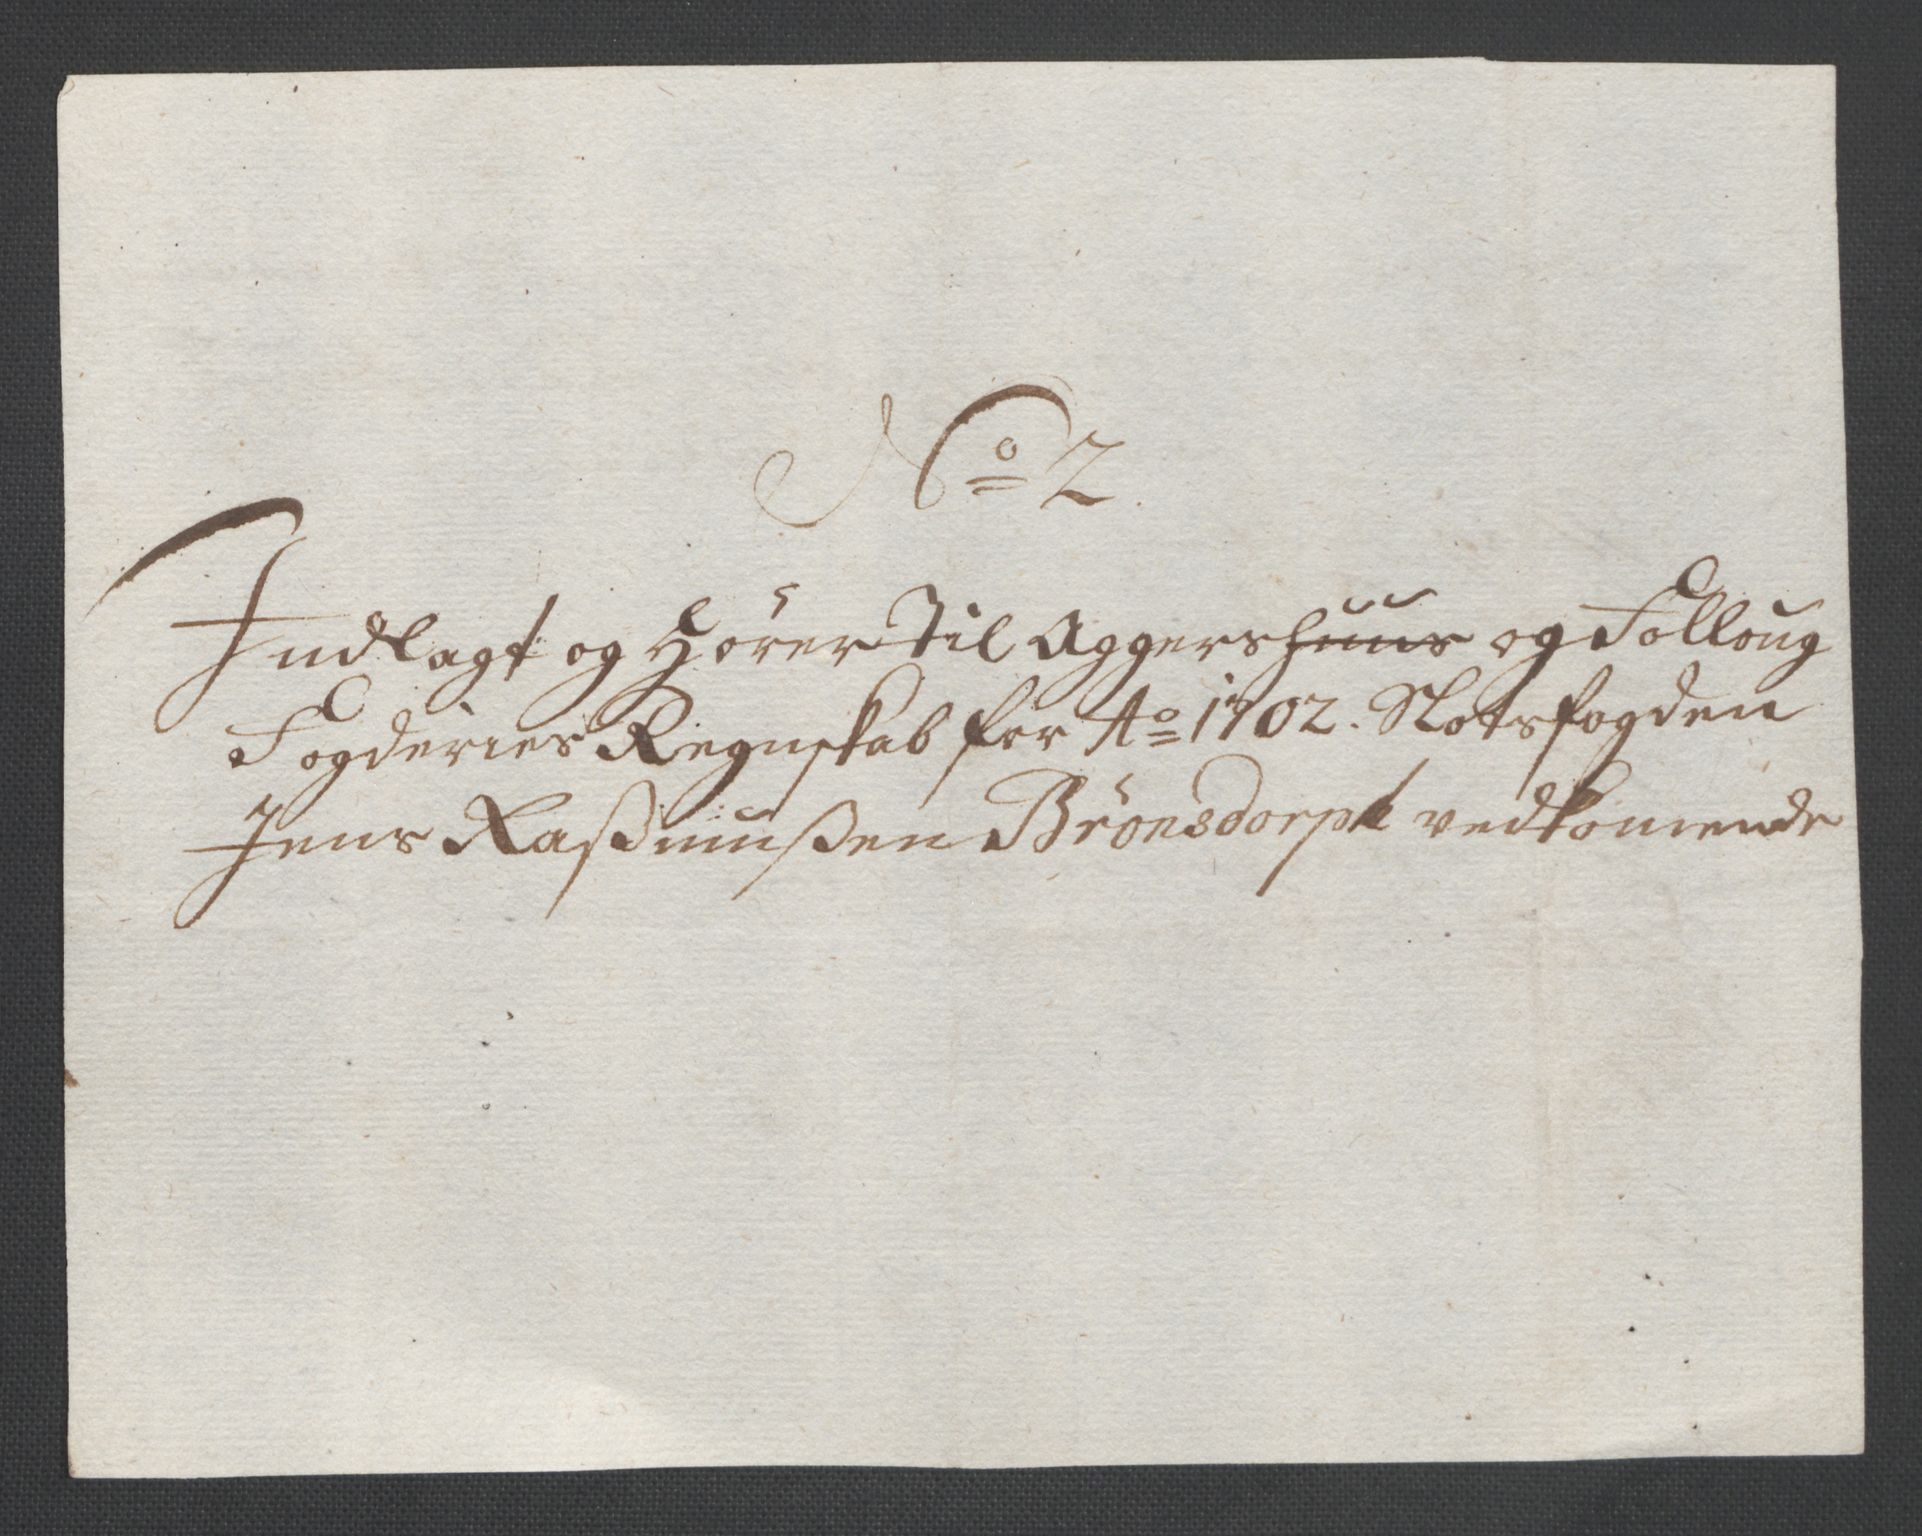 No 2.
Indlagt og Hörer Til Aggershuus og Folloug
Fogderies Regnskab for Ao 1702. Slotsfogden
Jens Raßmußen Brönsdorph vedkomende